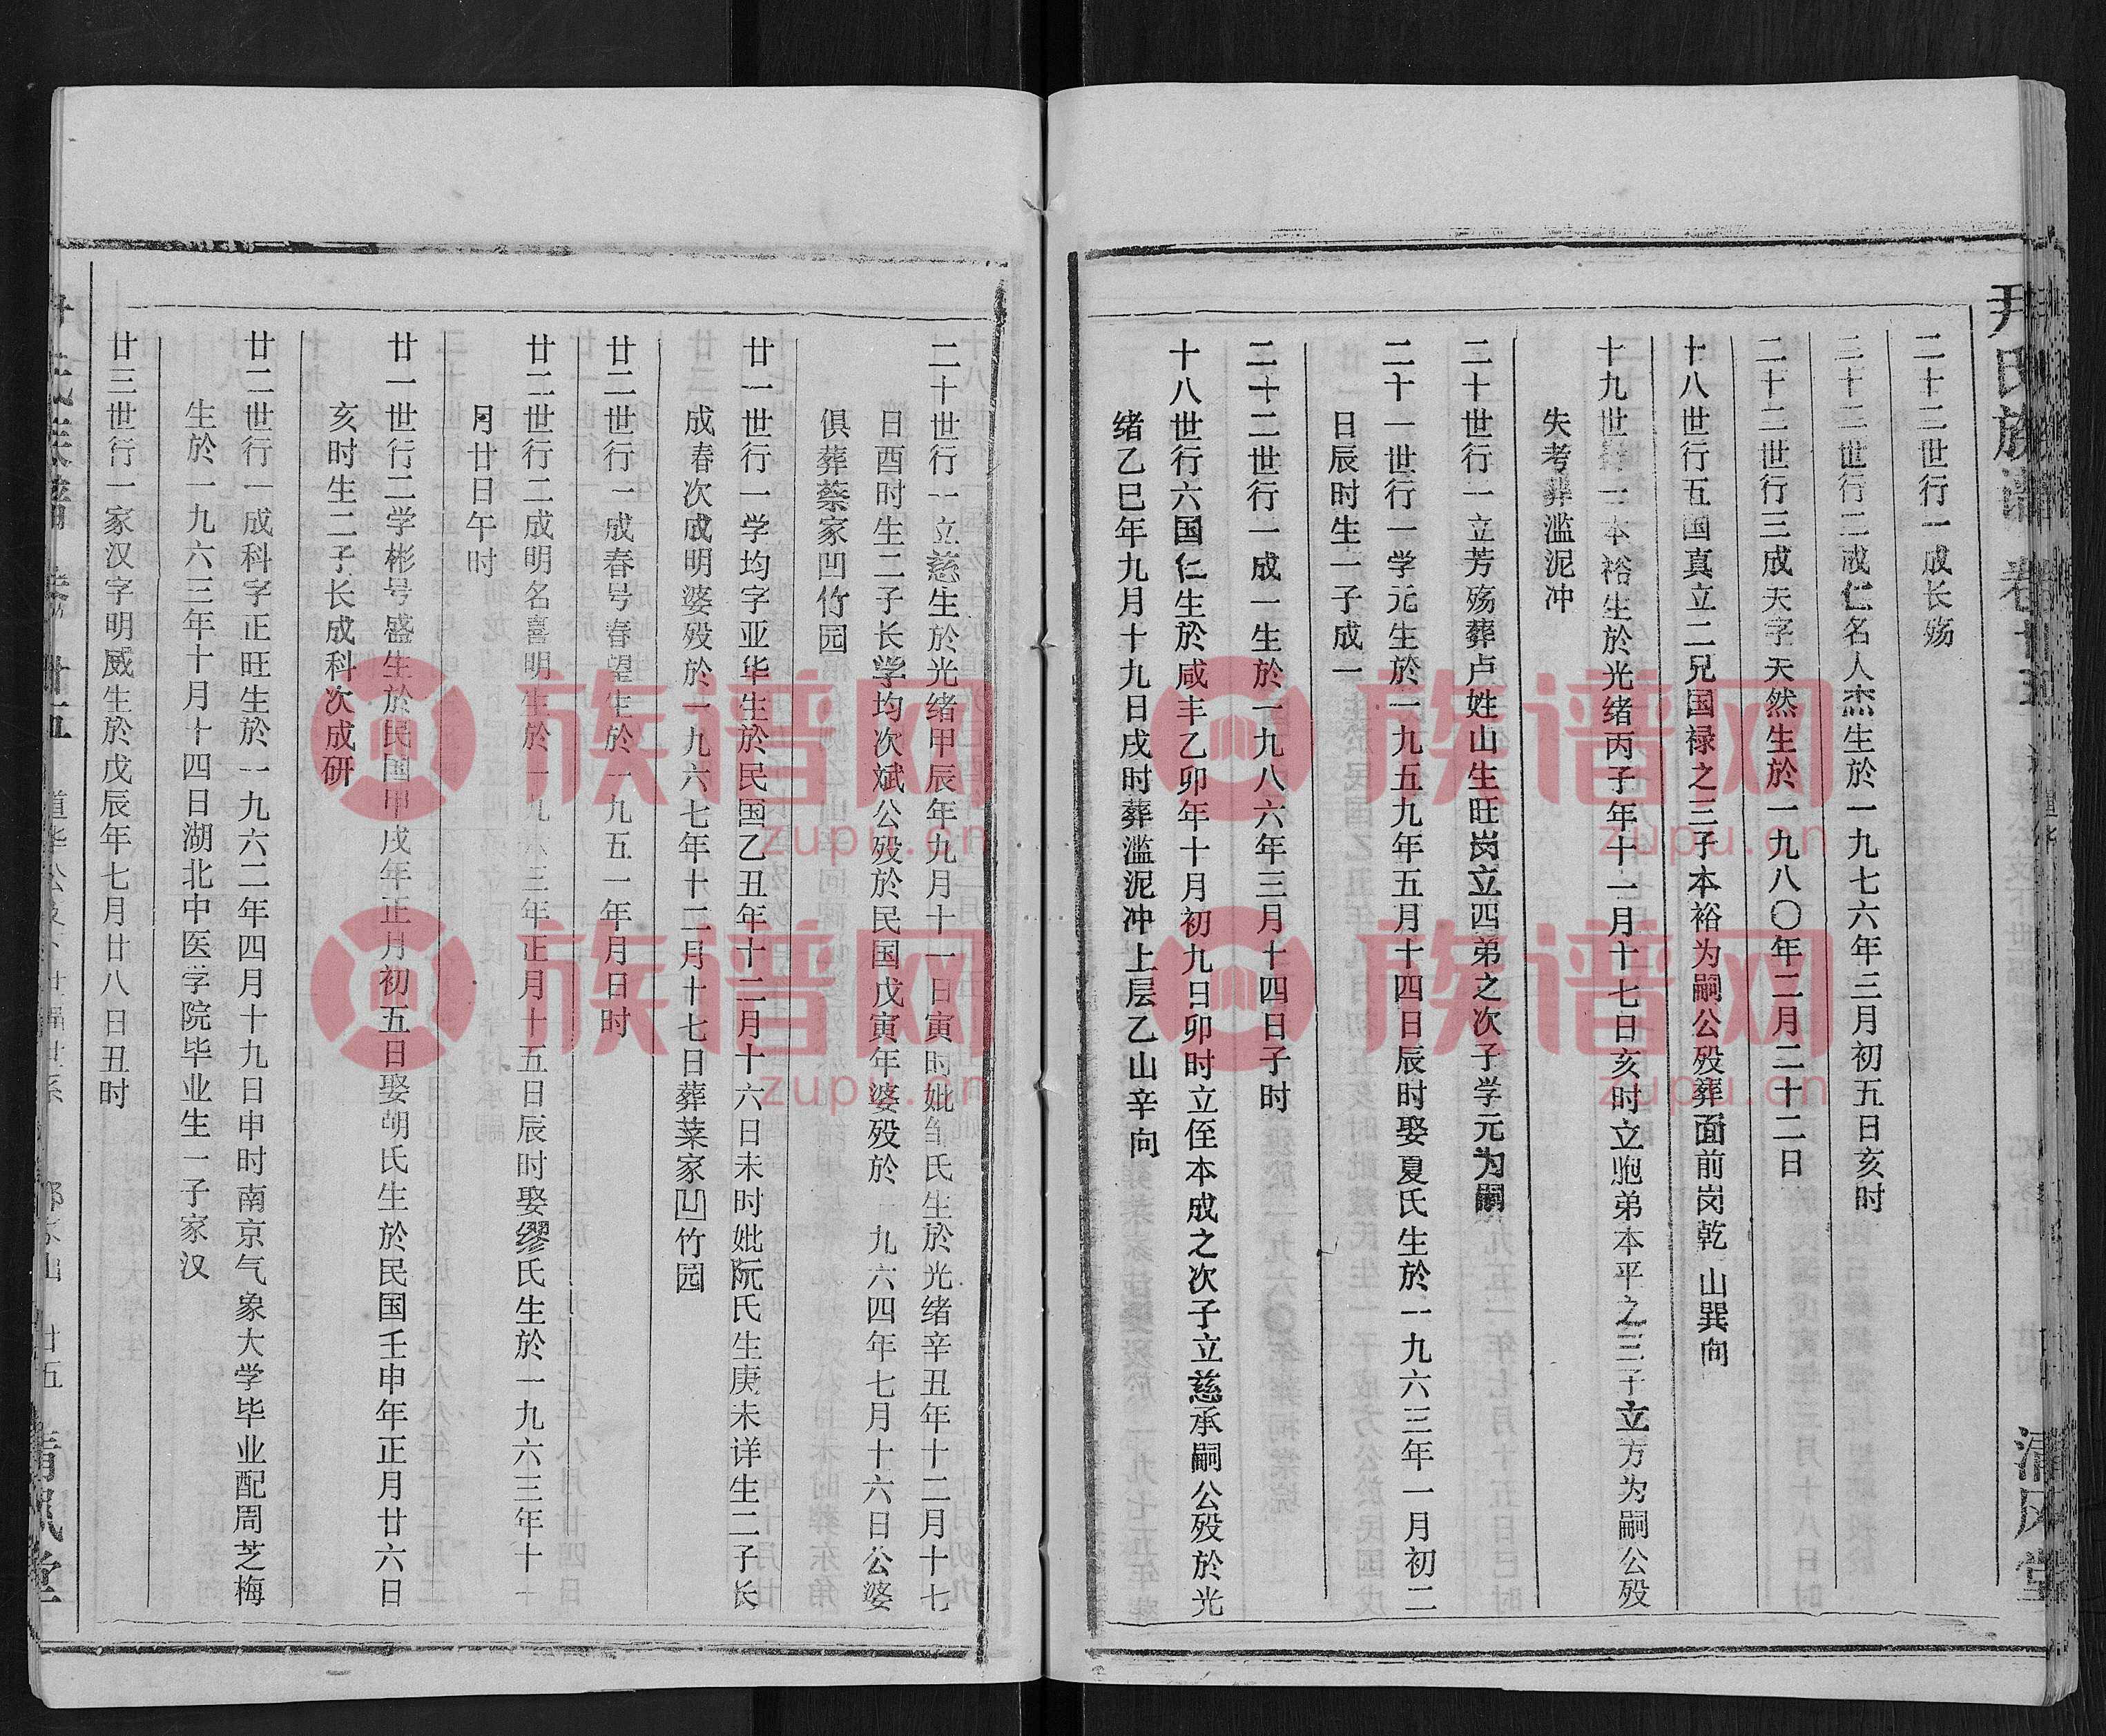 尹氏族谱 卷廿五 清风堂
二十二世行一成长殇
二十二世行二成仁名人杰生於一九七六年三月初五日亥时
二十二世行三成天字天然生於一九八〇年二月二十二日
十八世行五国真立二兄国禄之三子本裕为嗣公殁葬面前岗乾山巽向
十九世行一本裕生於光绪丙子年十一月十七日亥时立胞弟本平之三子立方为嗣公殁
失考葬滥泥冲
二十世行一立芳殇葬卢姓山生旺岗立四弟之次子学元为嗣
二十一世行一学元生於一九五九年五月十四日辰时娶夏氏生於一九六三年一月初二
日辰时生一子成一
二十二世行一成一生於一九八六年三月十四日子时
十八世行六国仁生於咸丰乙卯年十月初九日卯时立侄本成之次子立慈承嗣公殁於光
绪乙巳年九月十九日戌时葬滥泥冲上层乙山辛向
二十世行一立慈生於光绪甲辰年九月十一日寅时妣邹氏生於光绪辛丑年十二月十七
日酉时生二子长学均次斌公殁於民国戊寅年婆殁於 九六四年七月十六日公婆
俱葬蔡家凹竹园
廿一世行一学均字亚华生於民国乙丑年十二月十六日未时妣阮氏生庚未详生二子长
成春次成明婆殁於一九六七年十二月十七日葬菜家凹竹园
廿二世行一成春号春望生於一九五一年月日时
廿二世行二成明名喜明生於一九六三年正月十五日辰时娶缪氏生於一九六三年十
月廿日午时
廿一世行二学彬号盛生於民国甲戌年正月初五日娶胡氏生於民国壬申年正月廿六日
亥时生二子长成科次成研
廿二世行一成科字正旺生於一九六二年四月十九日申时南京气象大学毕业配周芝梅
生於一九六三年十月十四日湖北中医学院毕业生一子家汉
廿三世行一家汉字明威生於戊辰年七月廿八日丑时
廿五 清风堂
族谱网
zupu.cn
族谱网
zupu.cn
族谱网
zupu.cn
族谱网
zupu.cn